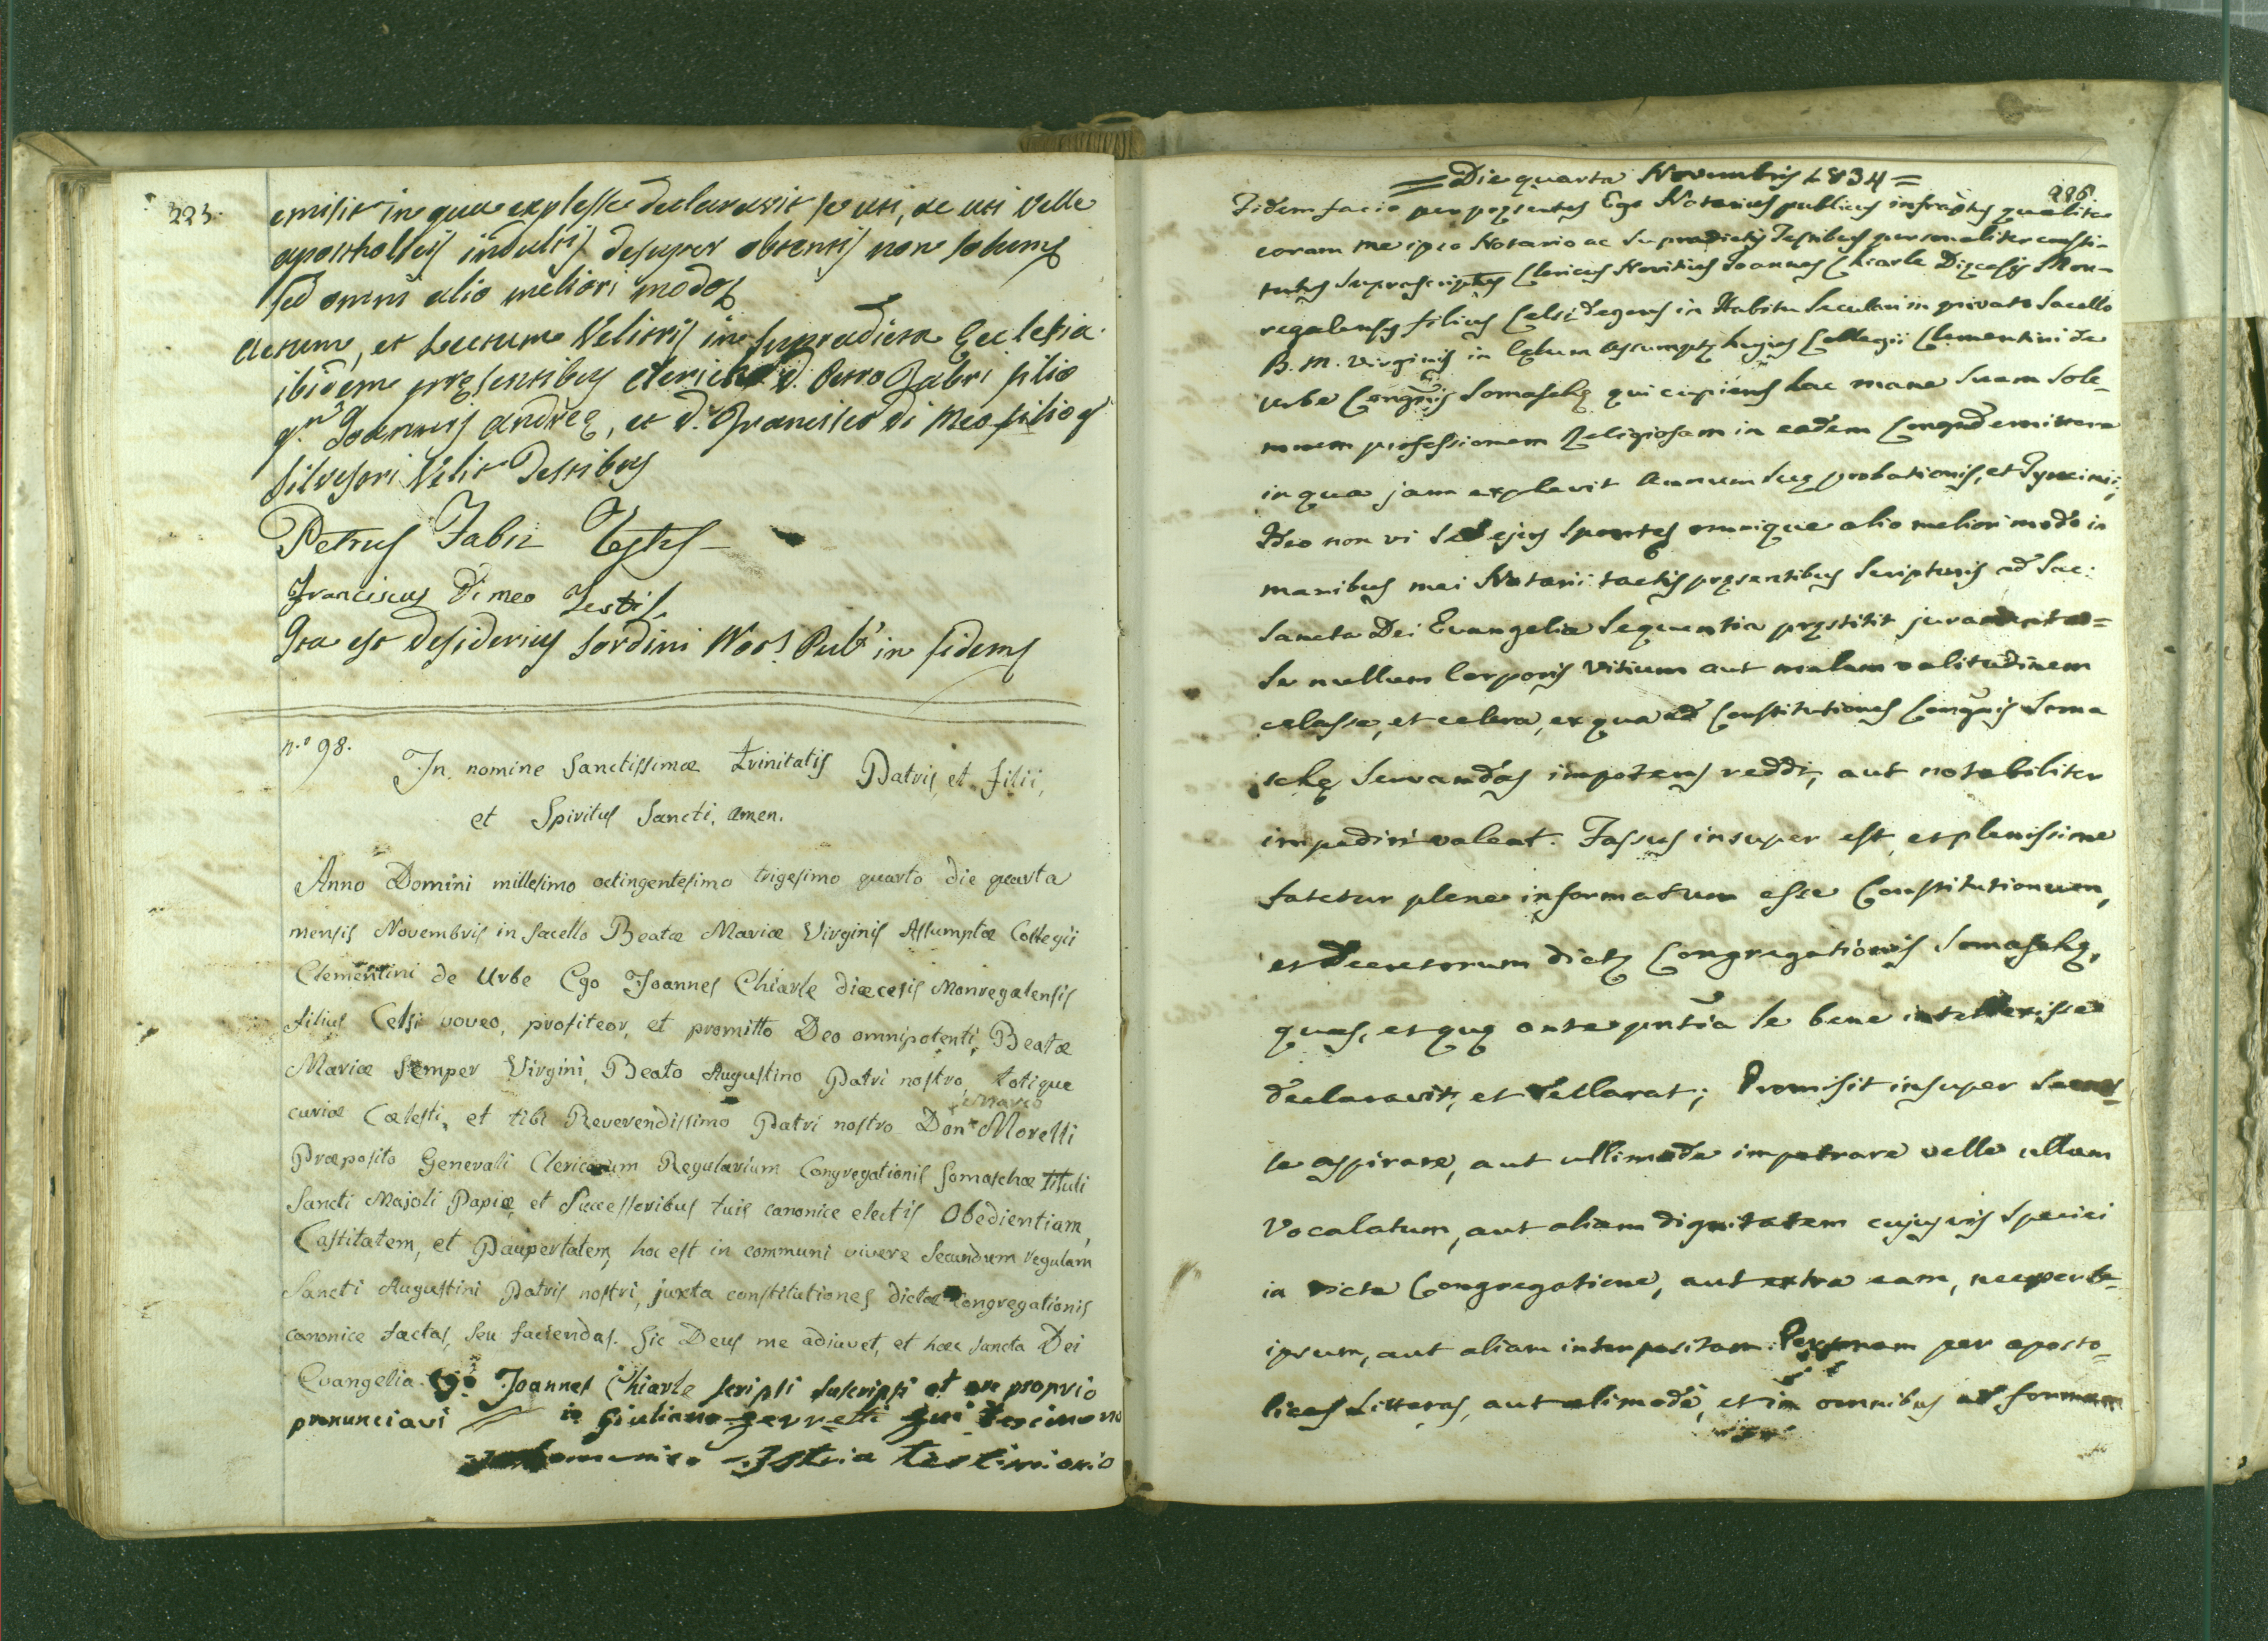 223.
emisit in qua expresse declaravit se uti, ac uti velle
apostholicis indultis desuper obtentis non solum
sed omni alio meliori modo
Actum, et Lectum Velitris in supradicta Ecclesia
ibidem presentibus clerico d. Petro Fabri filio
q.m Joannis Andreę, et d. Francisco di Meo filio q
Silvestri Velit Testibus
Petrus Fabri Testis
Franciscus Di meo Testis
Ita est Desiderius Sordini Not: Pub: in fidem
n.o 98.
In nomine Sanctissimæ trinitatis Patris, et filii,
et Spiritus Sancti. Amen.
Anno Domini millesimo octingentesimo trigesimo quarto die quarta
mensis Novembris in sacello Beatæ Mariæ Virginis Assumptæ Collegii
Clementini de Urbe Ego Joannes Chiarle diæcesis Monregalensis
filius Celsi voveo, profiteor, et promitto Deo omnipotenti, Beatæ
Mariæ semper Virgini, Beato Augustino Patri nostro, totique
curiæ Cælesti, et tibi Reverendissimo Patri nostro Don Morelli
Præposito Generali Clericorum Regularium Congregationis Somaschæ tituli
Sancti Majoli Papiæ, et Successoribus tuis canonice electis Obedientiam,
Castitatem, et Paupertatem, hoc est in communi vivere secundum regulam
Sancti Augustini Patris nostri, juxta constitutiones dictæ Congregationis
canonice factas, seu faciendas. Sic Deus me adiuvet, et hæc sancta Dei
Evangelia. Ego Joannes Chiarle scripsi suscripsi et ore proprio
pronunciavi io Giuliano
Istria testimonio
= Die quarta Novembris 1834 =
226.
Fidem facio per pręsentes Ego Notarius publicus infraptus qualiter
coram me ipso Notario ac supradictis Testibus personaliter consti-
tutus suprascriptus Clericus Novitius Joannes Chiarle Dięcesis Mon-
regalensis filius Celsi degens in Habitu seculari in privato sacello
B. M. Virginis in Cęlum assumptę hujus Collegii Clementini de
Urbe Congnis Somaschę qui cupiens hac mane suam sole-
mnem professionem Religiosam in eadem Congnde emittere
in qua jam explevit annum suę probationis, et Tyrocinii,
Ideo non vi sed ejus sponte omnique alio meliori modo in
manibus mei Notarii tactis pręsentibus scripturis ad Sac:
Sancta Dei Evangelia sequentia pręstitit juramenta=
Se nullum Corporis vitium aut malam valitudinem
celasse, et celera, ex qua ad Constitutiones Congnis Soma
schę servandas impotens reddi, aut notabiliter
impediri valeat. Fassus insuper est, et plenissime
fatetur plene informatum esse Constitutionum,
et Decretorum dictę Congregationis Somaschę,
quas, et quę ante pntia se bene intellexisse
declaravit, et declarat; Promisit insuper
se aspirare, aut ullimode impetrare velle ullam
Vocalatum, aut aliam dignitatem cujusvis speciei
in dicta Congregatione, aut extra eam, nec per se
ipsum, aut aliam interpositam Personam per aposto-
licas Litteras, aut alimode, et in omnibus ad formam